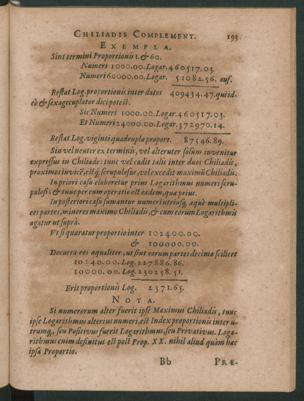 CHILIADIS COMPLEMENT. 193
EXEMPLA.
Sint termini Proportionis 1. & 60.
Numeri 1000.00. Logar. 460517.03.
Numeri 60000.00. Logar. 51082.56. auf.
Restat Log. proportionis inter datos 409434.47. qui id-
eò & sexagecuplator dici potest.
Sic Numeri 1000.00. Logar. 460517.03.
Et Numeri 24000.00. Logar. 372970.14.
Restat Log. vigintiquadrupla propert. 87546.89.
Sin vel neuter ex terminis, vel alteruter solùm invenitur
expressus in Chiliade: tunc vel cadit talis inter duos Chiliadis,
proximos
In priori casu elaboretur prius Logarithmus numeri scru-
pulosi: & tunc per eum operatio est eadem, quæ prius.
In posteriori casu sumantur numeri utrinq; æquè multipli-
ces partes, minores maximo Chiliadis, & cum eorum Logarithmis
agitur ut suprà.
Ut si quæratur proportio inter 102400.00.
& 100000.00.
Decurta eos æqualiter, ut sint eorum partes decimæ scilicet
10240.00. Log. 227886.86.
10000.00. Log. 230258.51.
Erit proportionis Log. 2371.65.
NOTA.
Si numerorum alter fuerit ipse Maximus Chiliadis, tunc
ipse Logarithmus alterius numeri, est Index proportionis inter u-
trumq; seu Positivus fuerit Logarithmus, seu Privativus. Loga-
rithmus enim definitus est post Prop. XX. nihil aliud quàm hæc
ipsa Proportio.
Bb PRÆ-